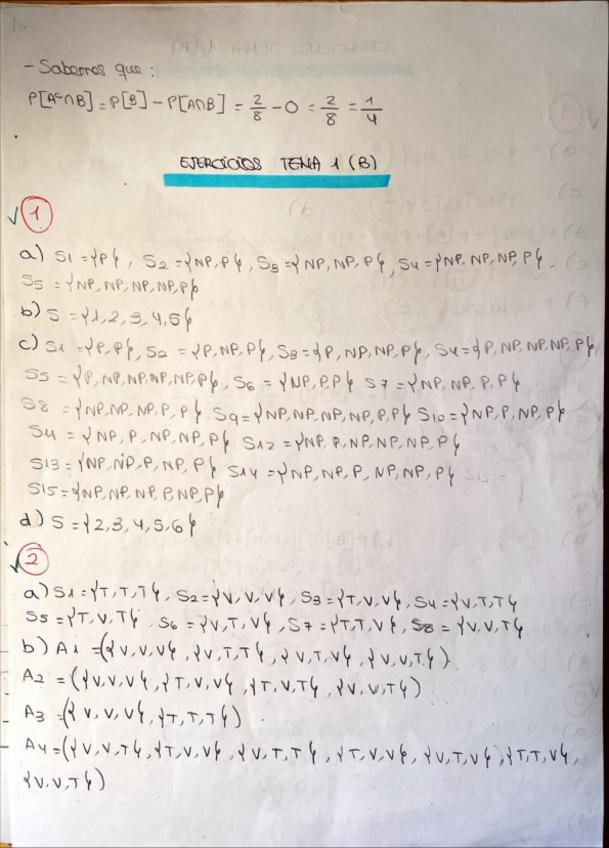 - Sabemos que:
P[Aᶜ∩B] = P[B] - P[A∩B] = 2/8 - 0 = 2/8 = 1/4
EJERCICIOS TEMA 1 (B)
1
a) S1 = {P}, S2 = {NP, P}, S3 = {NP, NP, P}, S4 = {NP, NP, NP, P}.
S5 = {NP, NP, NP, NP, P}
b) S = {1, 2, 3, 4, 5}
c) S1 = {P, P}, S2 = {P, NP, P}, S3 = {P, NP, NP, P}, S4 = {P, NP, NP, NP, P}
S5 = {P, NP, NP, NP, NP, P}, S6 = {NP, P, P} S7 = {NP, NP, P, P}
S8 = {NP, NP, NP, P, P}. S9 = {NP, NP, NP, NP, P, P} S10 = {NP, P, NP, P}
S11 = {NP, P, NP, NP, P} S12 = {NP, P, NP, NP, NP, P}
S13 = {NP, NP, P, NP, P} S14 = {NP, NP, P, NP, NP, P}
S15 = {NP, NP, NP, P, NP, P}
d) S = {2, 3, 4, 5, 6}
2
a) S1 = {T, T, T}, S2 = {V, V, V}, S3 = {T, V, V}, S4 = {V, T, T}
S5 = {T, V, T}, S6 = {V, T, V}, S7 = {T, T, V}, S8 = {V, V, T}
b) A1 = ({V, V, V}, {V, T, T}, {V, T, V}, {V, V, T})
A2 = ({V, V, V}, {T, V, V}, {T, V, T}, {V, V, T})
A3 = ({V, V, V}, {T, T, T})
A4 = ({V, V, T}, {T, V, V}, {V, T, T}, {T, V, V}, {V, T, V}, {T, T, V},
{V, V, T})